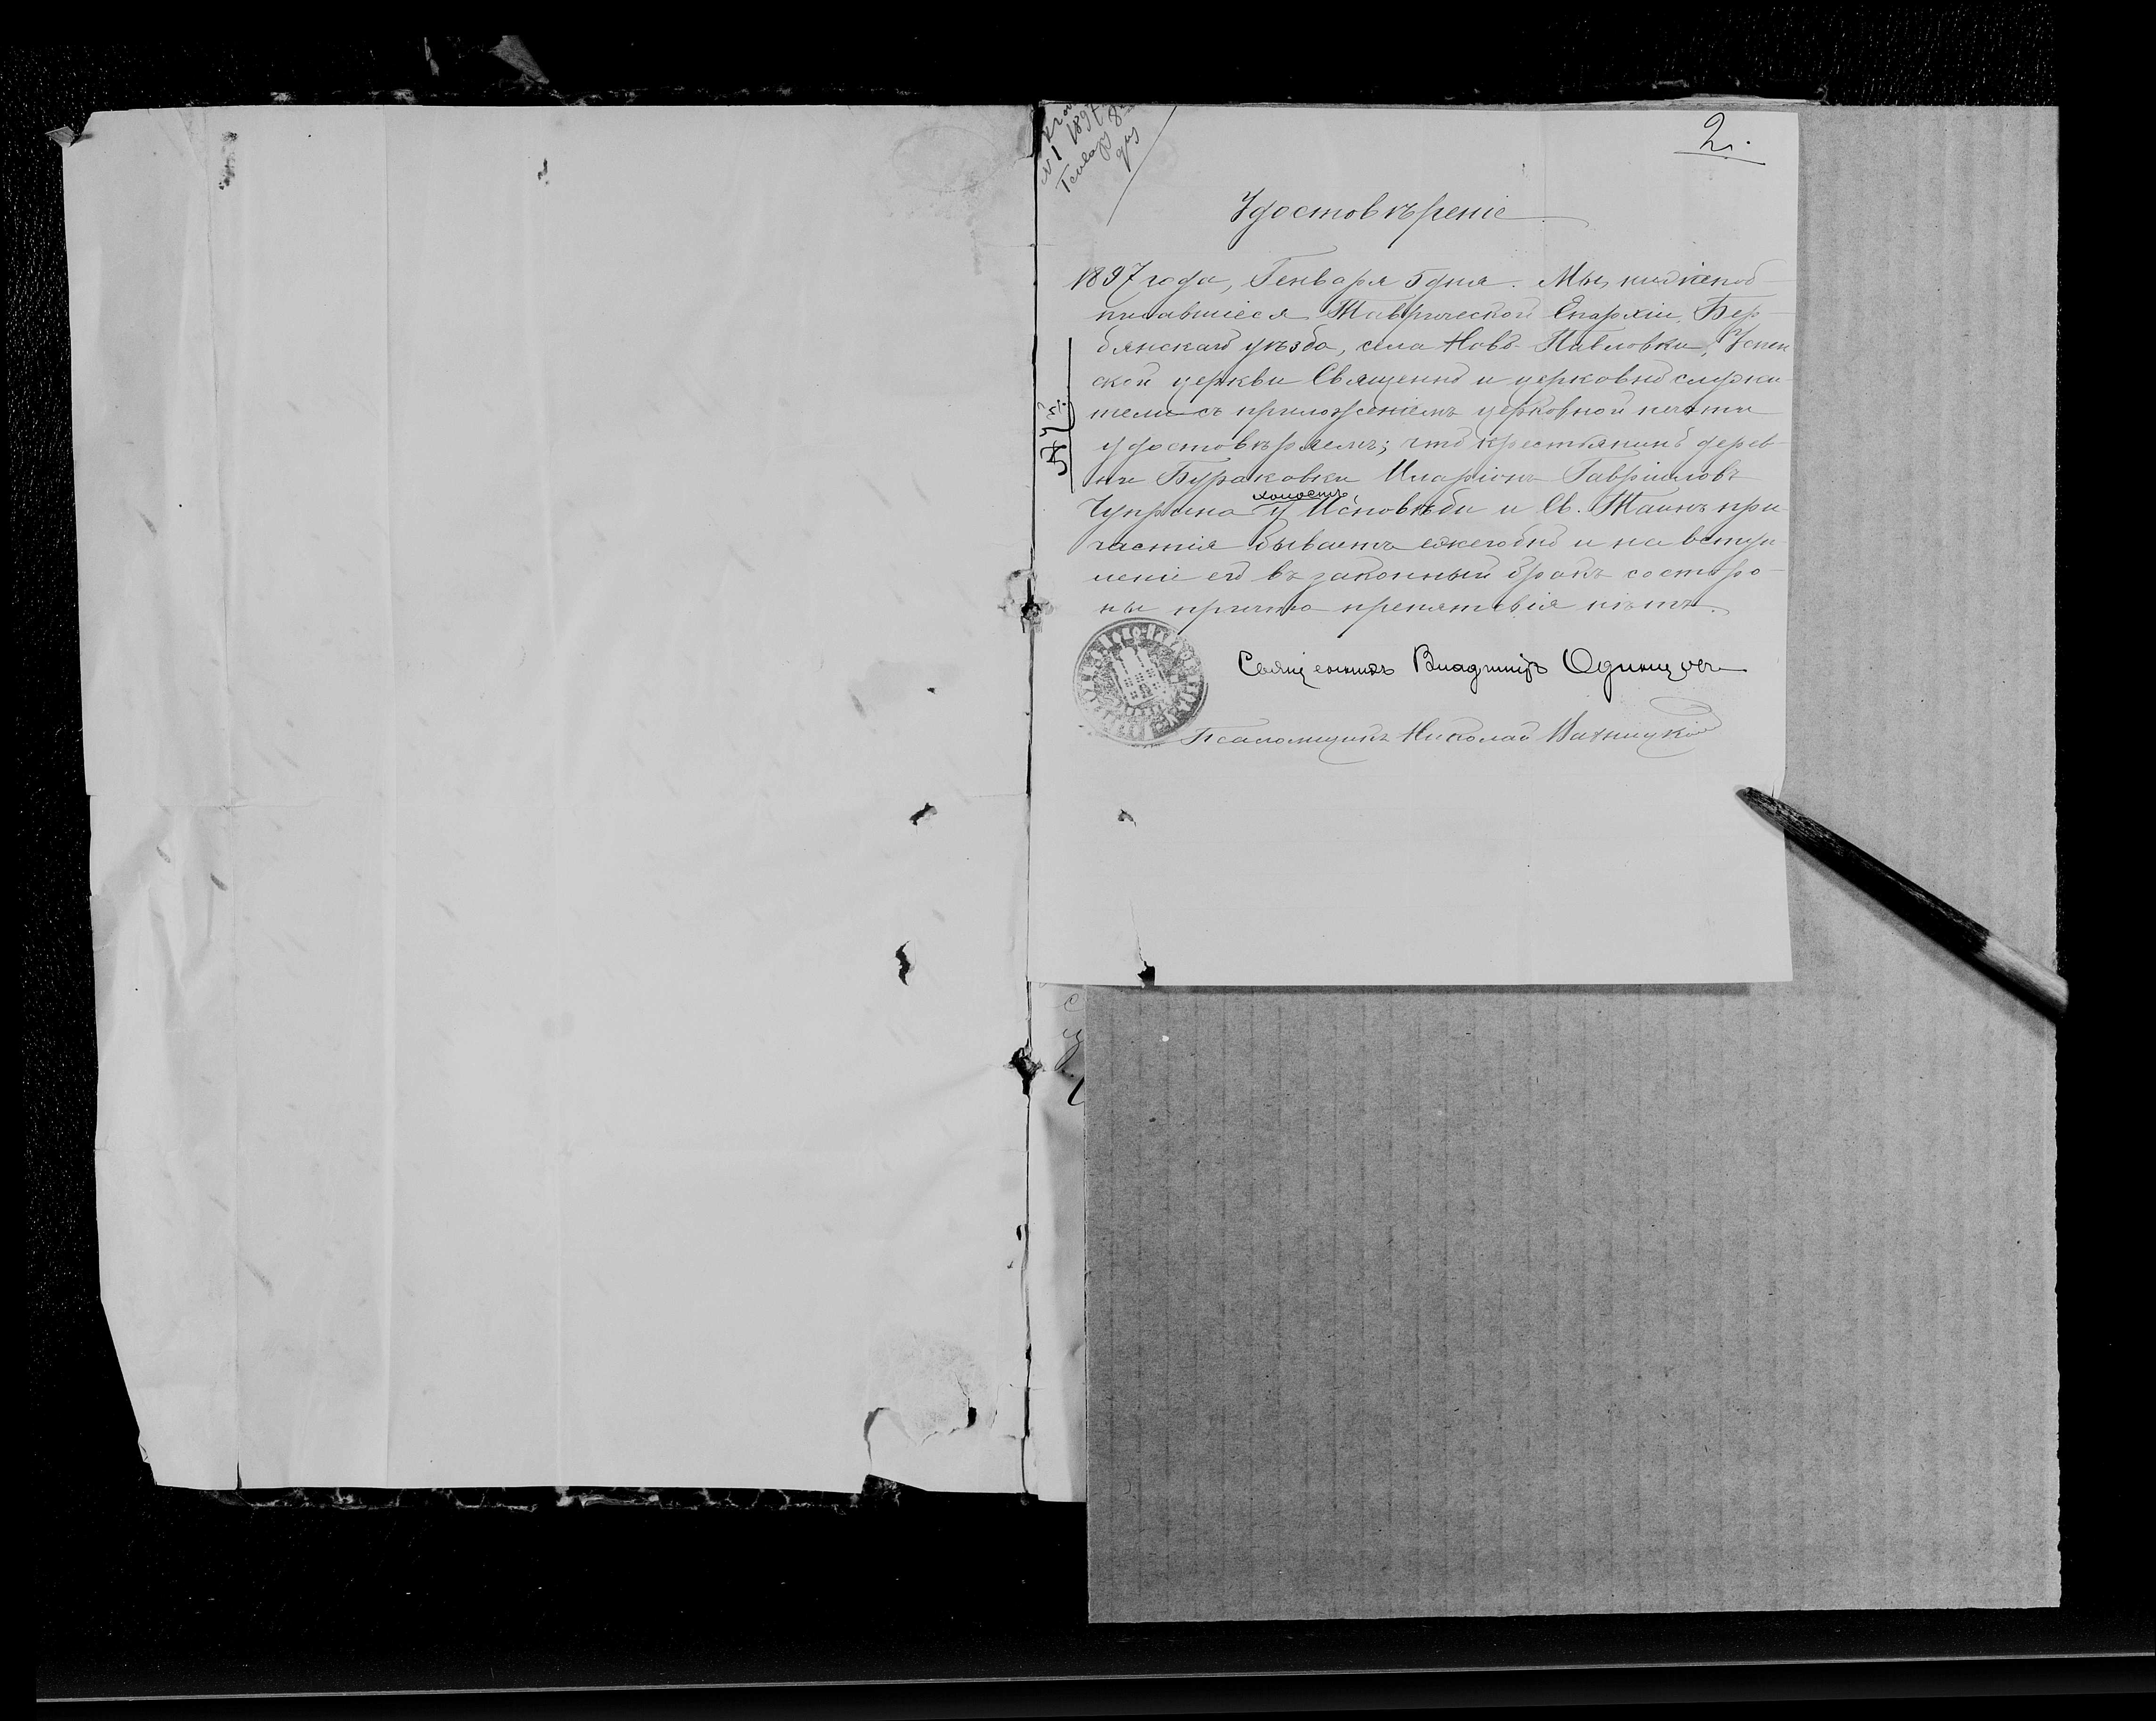 2.
№ 1 1897
Генвар 8
дня
Удостовѣреніе
1897 года, Генваря 5 дня. Мы, нижепод-
писавшіеся Таврической Епархіи, Бер-
дянскаго уѣзда, села Ново-Павловки, Успен
ской церкви Священно и церковно служи-
тели съ приложеніемъ церковной печати
удостовѣряемъ; что крестьянинъ дерев-
ни Бураковки Иларіонъ Гавріиловъ
холостъ
Чуприна у Исповѣди и Св. Таинъ при
частія бываетъ ежегодно и на вступ
леніе его въ законный бракъ со сторо-
ны причта препятствія нѣтъ.
Священникъ Владиміръ Одинцовъ
Псаломщикъ Николай